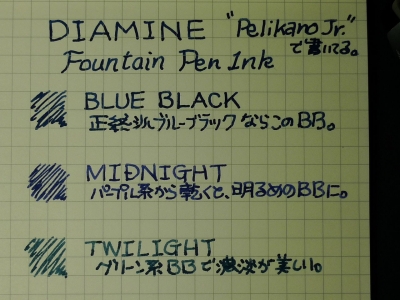 DIAMINE "Pelikano Jr."
で書いてる。
Fountain Pen Ink
BLUE BLACK
正統派ブルーブラックならこのBB。
MIDNIGHT
パープル系から乾くと、明るめのBBに。
TWILIGHT
グリーン系BBで濃淡が美しい。